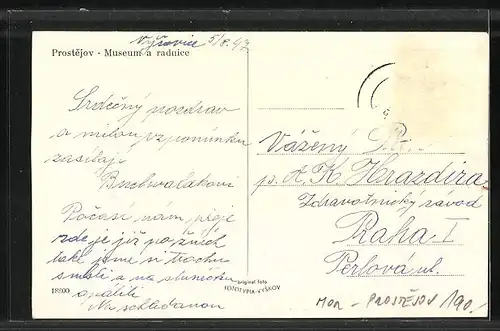 Vřesovice 5/8.47
Prostějov - Museum a radnice
Srdečný pozdrav
a milou vzpomínku
zasílají
Buchvaldkovi
Počasí nám přeje
zde je již po žních
také jsme si trochu
smetli a na sluníčku
opálili
Na shledanou
18800
original foto
FOTOTYPIA-VYŠKOV
Vážený P.
p. A. K. Hrazdira
Zdravotnický závod
Praha I
Perlová ul.
MOR - PROSTĚJOV 190,-